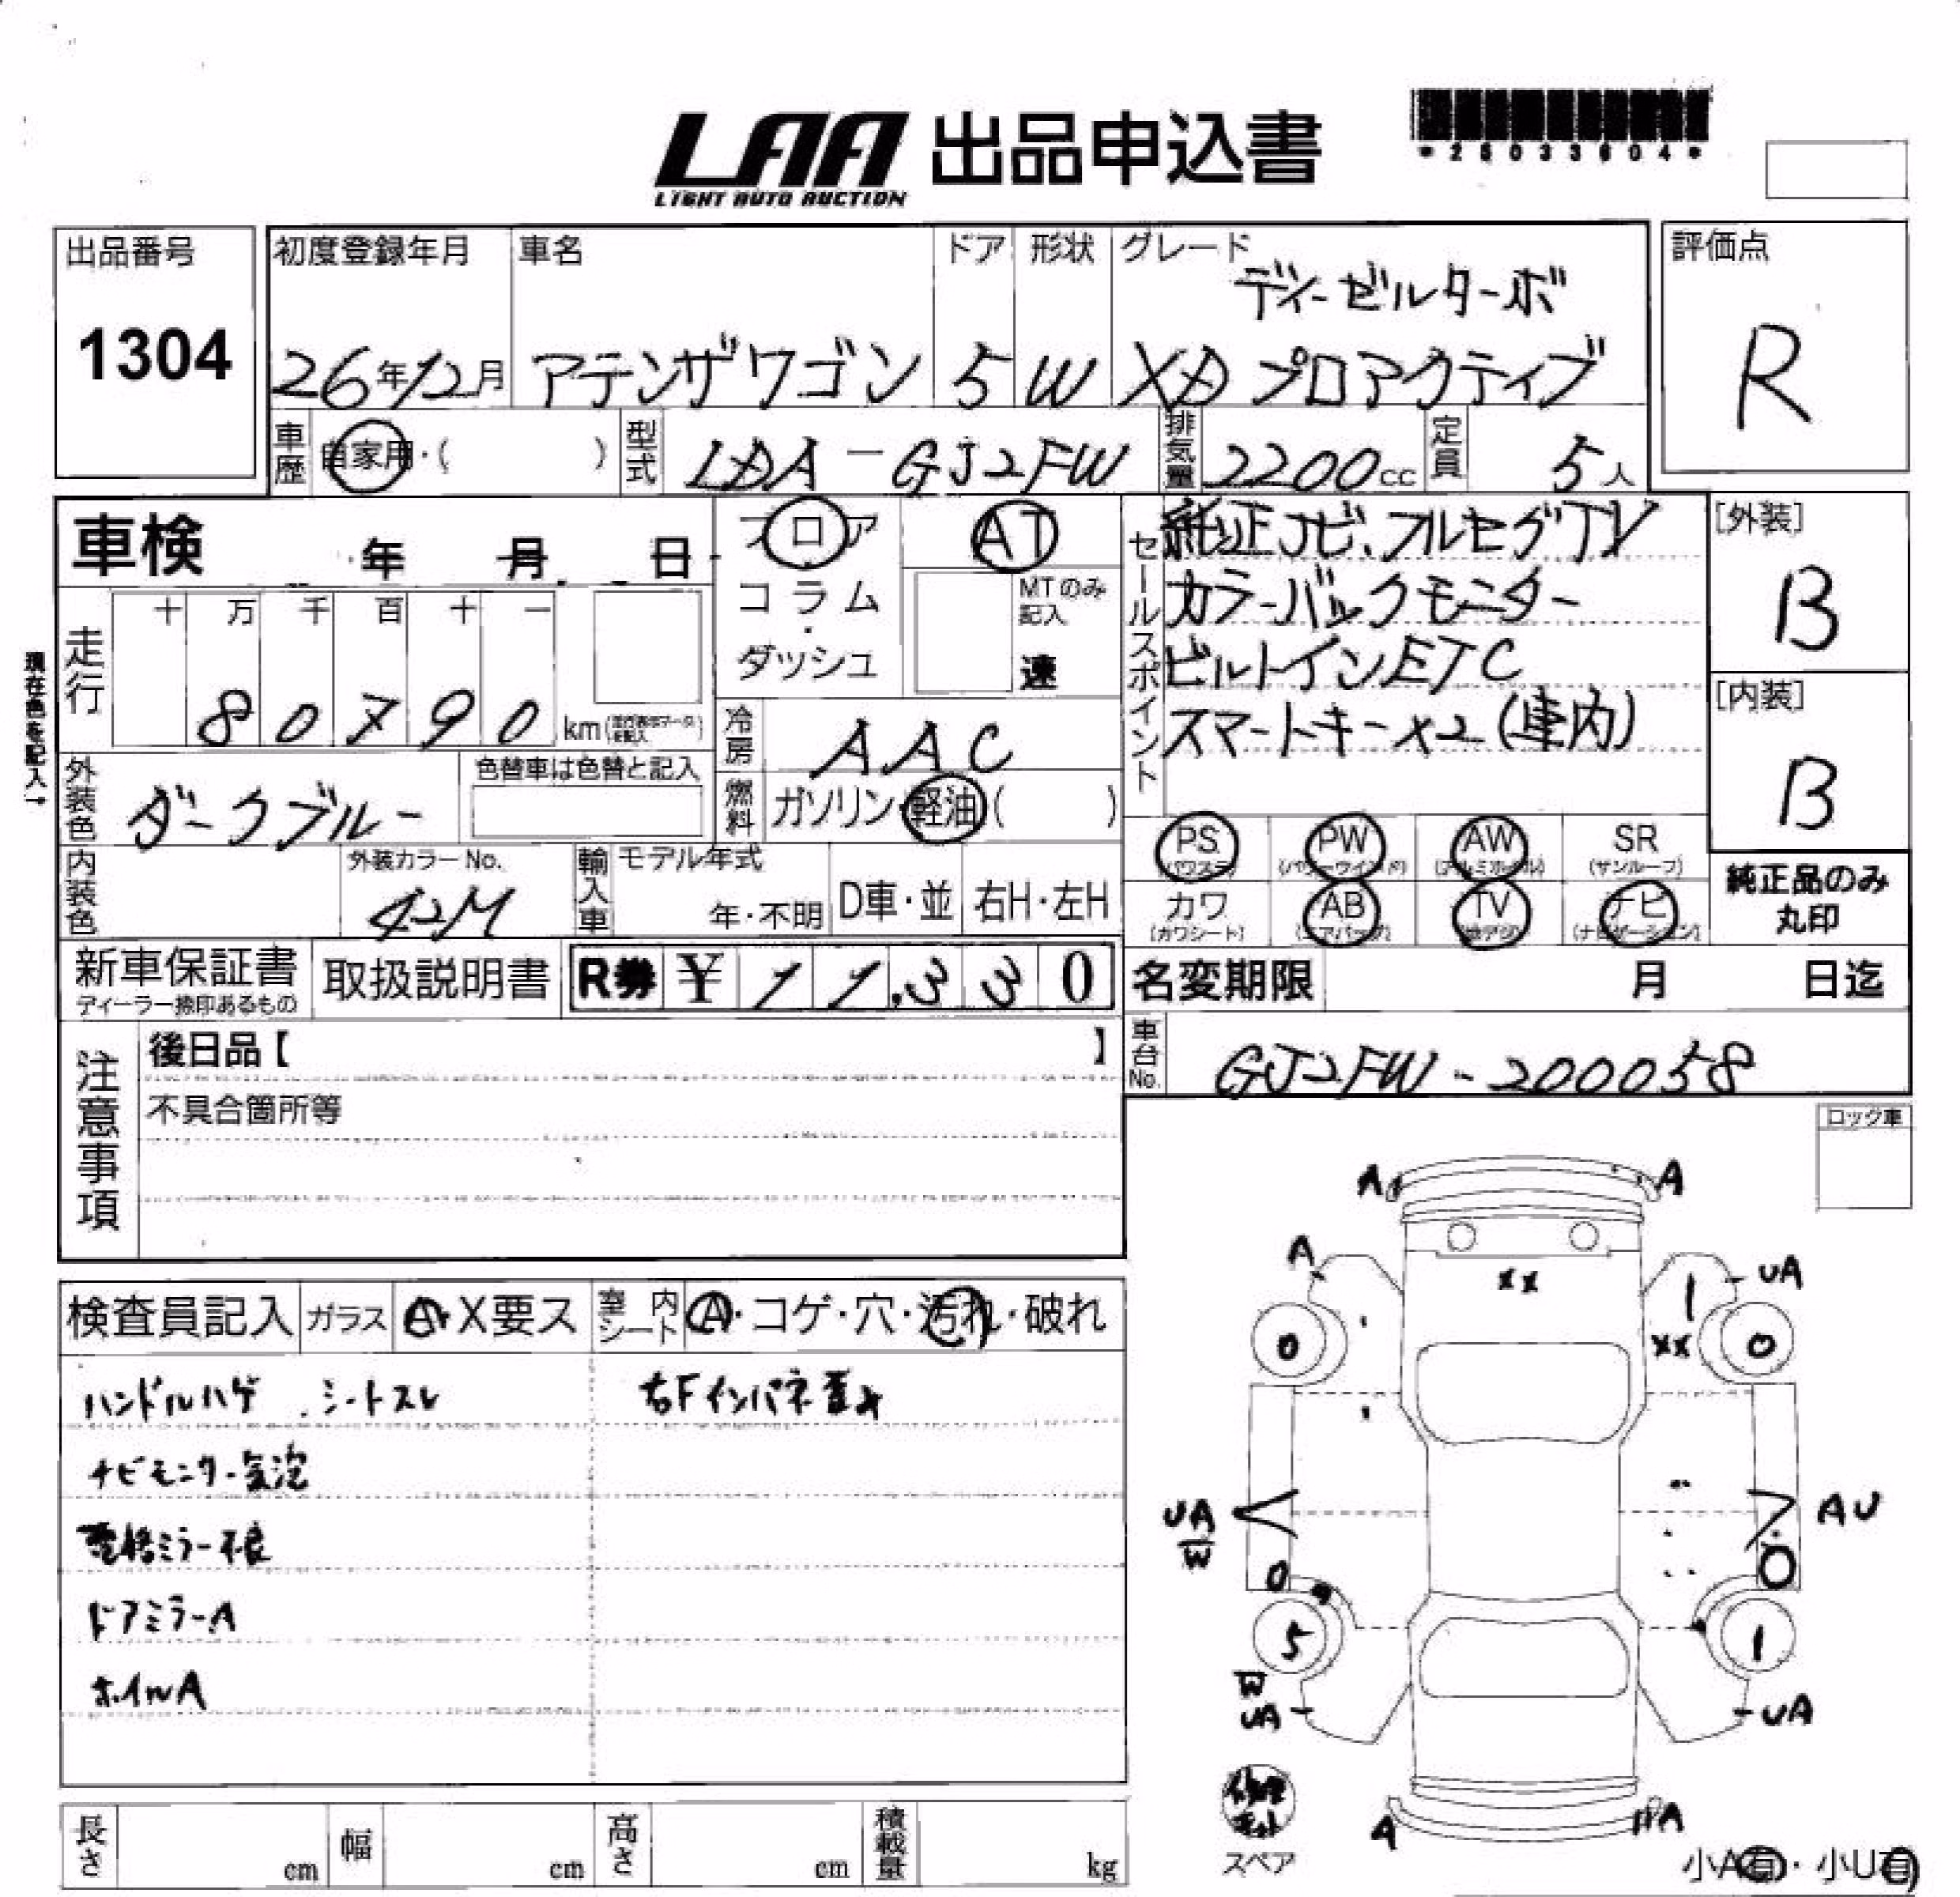 LAA 出品申込書
LIGHT AUTO AUCTION
*25033604*
出品番号
1304
初度登録年月
26年12月
車名
アテンザワゴン
ドア
5
形状
W
グレード
ディーゼルターボ
XD プロアクティブ
評価点
R
車歴
自家用・( )
型式
LDA-GJ2FW
排気量
2200cc
定員
5人
車検 年 月 日
フロア
コラム
・
ダッシュ
AT
MTのみ記入
速
セールスポイント
純正ナビ、フルセグTV
カラーバックモニター
ビルトインETC
スマートキー×2(車内)
[外装]
B
[内装]
B
現在色を記入→
走行
十 万 千 百 十 一
8 0 7 9 0 km
冷房
AAC
外装色
ダークブルー
色替車は色替と記入
燃料
ガソリン・軽油( )
内装色
外装カラーNo.
42M
輸入車
モデル年式
年・不明
D車・並
右H・左H
PS
(パワステ)
PW
(パワーウインドウ)
AW
(アルミホイル)
SR
(サンルーフ)
カワ
(カワシート)
AB
(エアバッグ)
TV
(地デジ)
ナビ
(ナビゲーション)
純正品のみ
丸印
新車保証書
ディーラー捺印あるもの
取扱説明書
R券 ¥ 11,330
名変期限 月 日迄
車台No.
GJ2FW-200058
注意事項
後日品【 】
不具合箇所等
ロック車
検査員記入
ガラス
A・X要ス
室内シート
A・コゲ・穴・汚れ・破れ
ハンドルハゲ シートスレ
右Fインパネ歪み
ナビモニター気泡
電格ミラー不良
ドアミラーA
ホイルA
A
A
A
UA
××
××
0
0
UA
W
AU
0
0
5
1
W
UA
UA
修理キット
スペア
A
A
小A有・小U有
長さ cm
幅 cm
高さ cm
積載量 kg